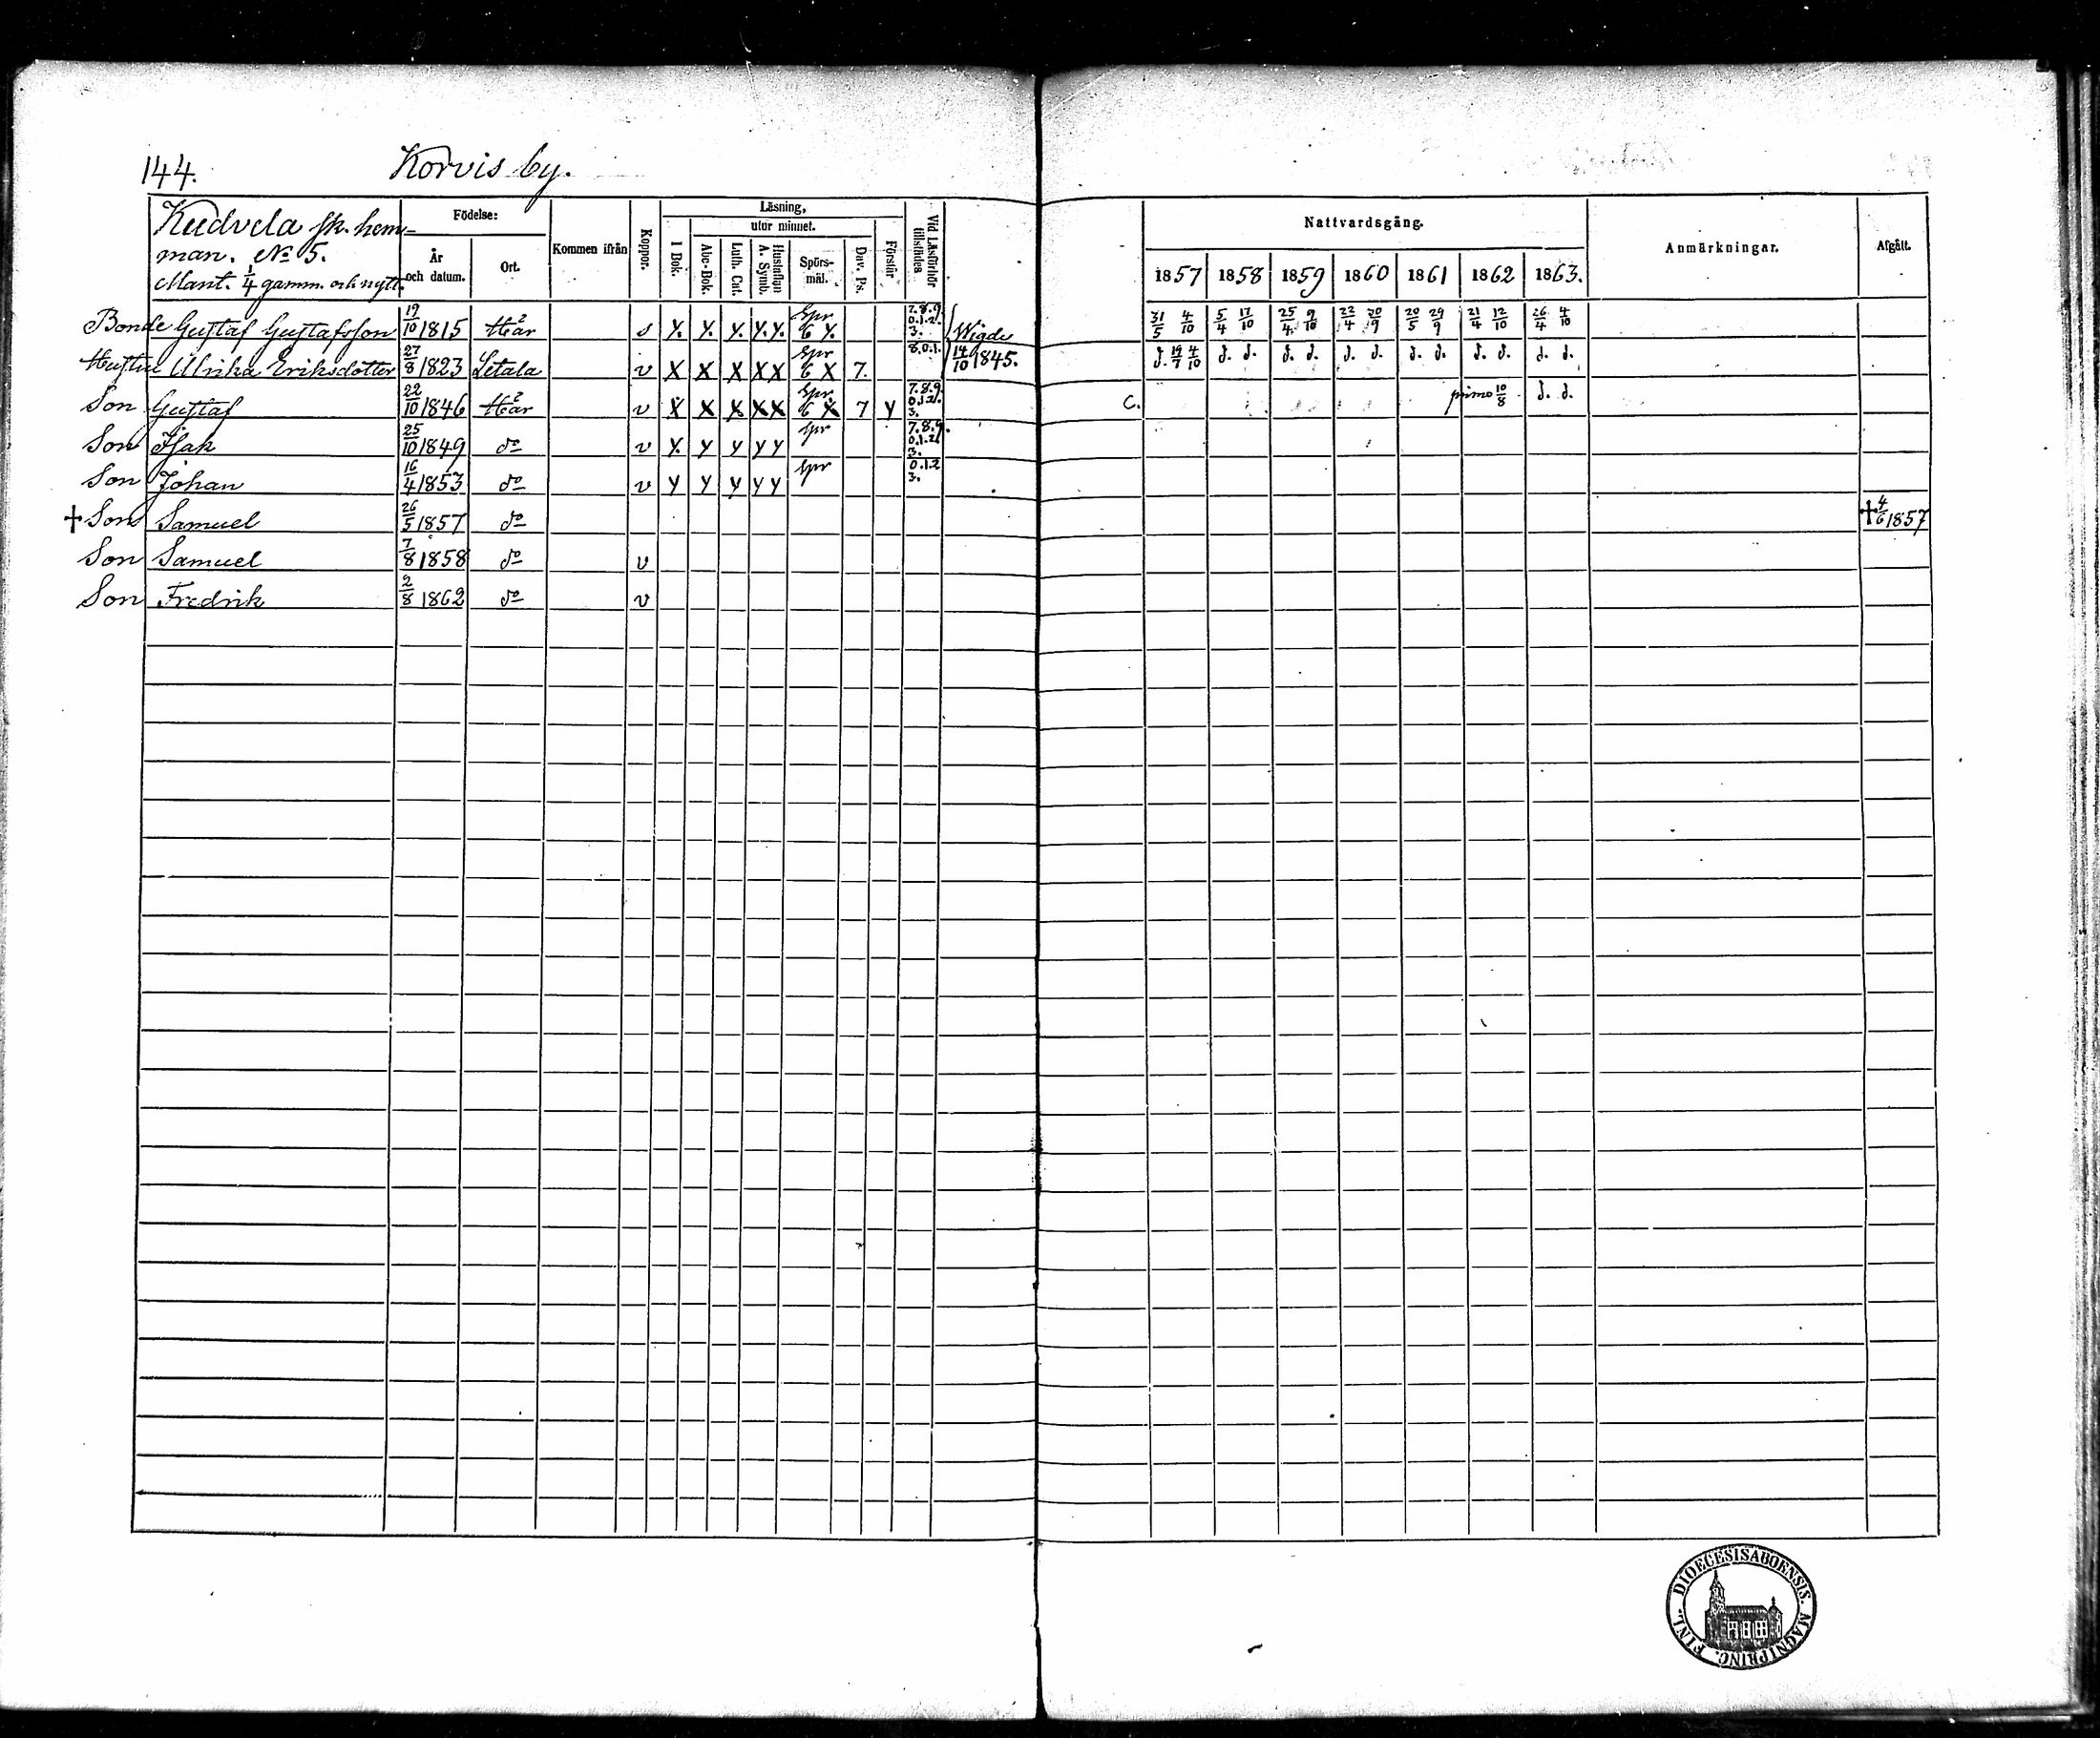 144. Korvis by.
Kudvela sk. hem-
man. No 5.
Mant. 1/4 gamm. och nytt.
Födelse:
År och datum.
Ort.
Kommen ifrån
Koppor.
Läsning,
utur minnet.
I Bok.
Abc-Bok.
Luth. Cat.
A. Symb.
Hustaflan
Spörs-mål.
Dav. Ps.
Förstår
Vid Läsförhör tillstädes
Nattvardsgång.
1857 1858 1859 1860 1861 1862 1863.
Anmärkningar.
Afgått.
Bonde Gustaf Gustafsson 19/10 1815 Här s y. y. y. y. y. Spr 6 y. 7.8.9. 0.1.2. 3. Wigde 31/5 4/10 5/4 17/10 25/4 9/10 22/4 30/9 20/5 29/9 21/4 12/10 26/4 4/10
Hustru Ulrika Eriksdotter 27/8 1823 Letala v X X X X X Spr 6 X 7. 8.0.1. 14/10 1845. d. 19/7 4/10 d. d. d. d. d. d. d. d. d. d. d. d.
Son Gustaf 22/10 1846 Här v X X X X X Spr. 6 X 7 y 7.8.9. 0.1.2. 3. C. primo 10/8 d. d.
Son Isak 25/10 1849 do v y. y y y y Spr 7.8.9. 0.1.2. 3.
Son Johan 16/4 1853 do v y y y y y Spr 0.1.2 3.
† Son Samuel 26/5 1857 do † 4/6 1857
Son Samuel 7/8 1858 do v
Son Fredrik 2/8 1862 do v
DIOECESIS ABOENSIS. MAGNI PRINC. FINL.